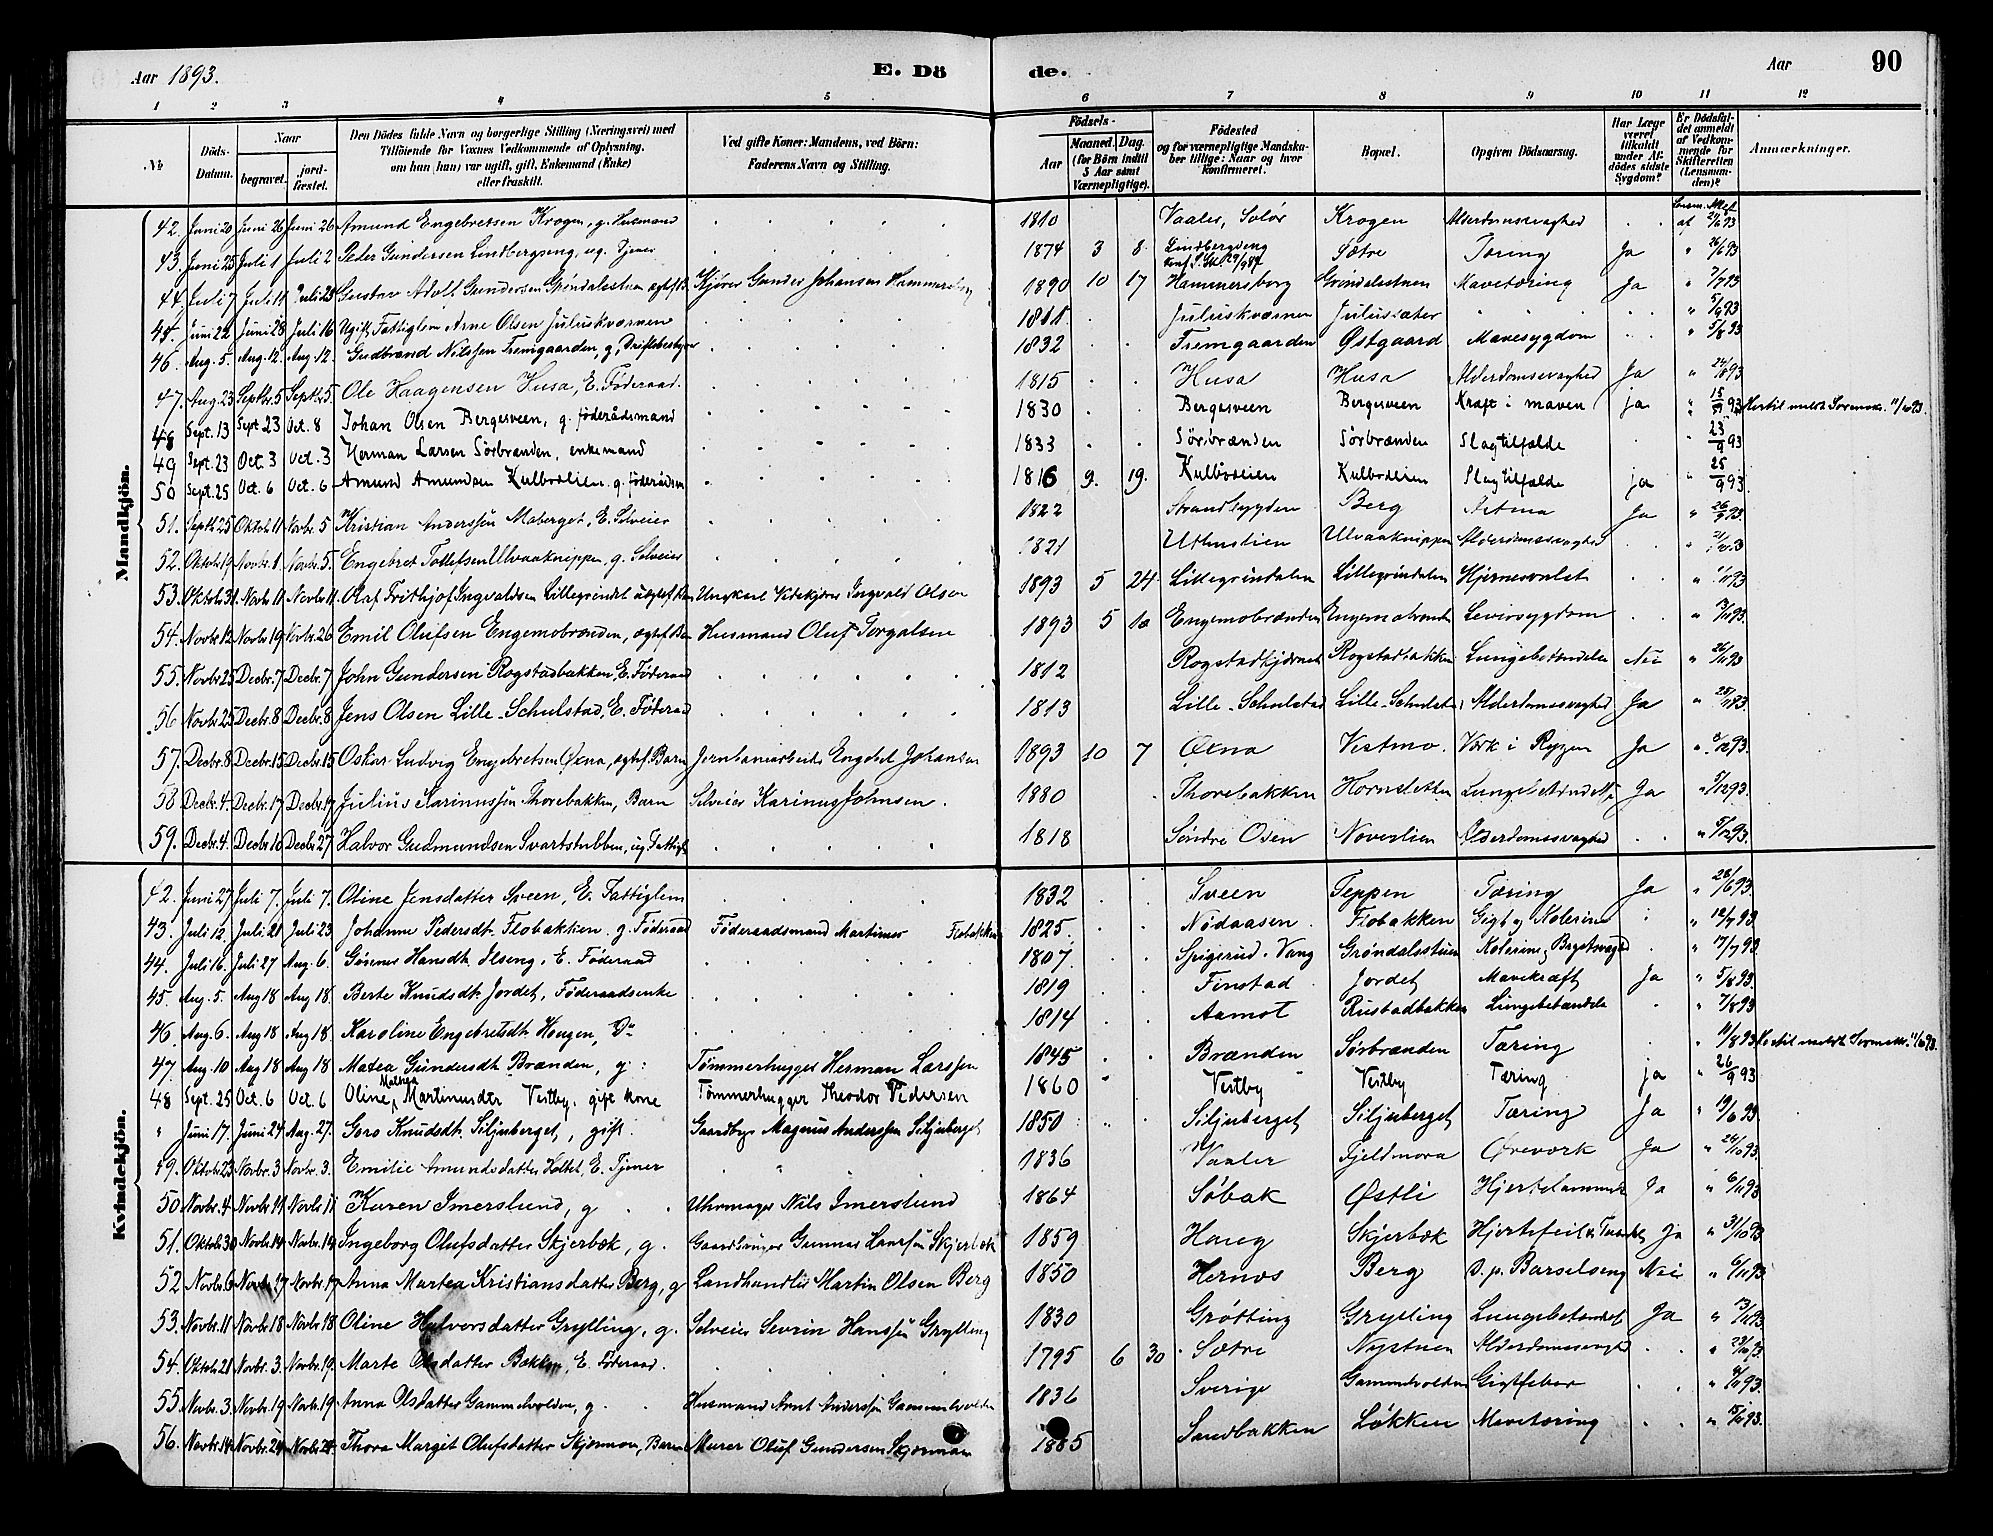 Aar 1893. E. Dö de. Aar 90
1 2 3 4 5 6 7 8 9 10 11 12
No Döds-Datum. Naar begravet. jordfæstet. Den Dödes fulde Navn og borgerlige Stilling (Næringsvei) med Tilföiende for Voxnes Vedkommende af Oplysning, om han (hun) var ugift, gift, Enkemand (Enke) eller fraskilt. Ved gifte Koner: Mandens, ved Börn: Faderens Navn og Stilling. Födsels- Aar Maaned. Dag. (for Börn indtil 5 Aar samt Værnepligtige). Födested og for værnepligtige Mandskaber tillige: Naar og hvor konfirmeret. Bopæl. Opgiven Dödsaarsag. Har Læge været tilkaldt under Afdödes sidste Sygdom? Er Dödsfaldet anmeldt af Vedkommende for Skifteretten (Lensmanden)? Anmærkninger.
Mandkjön.
42. Juni 20 Juni 26 Juni 26 Amund Engebretsen Krogen, g. Husmand 1810 Vaaler, Solør Krogen Alderdomssvaghed
43. Juni 25 Juli 1 Juli 2 Peder Gundersen Lindbergseng, ug. Tjener 1874 3 8 Lindbergseng Sætre Tæring Ja " 26/6 93
44. Juli 7 Juli 14 Juli 23 Gustav Adolf Gundersen Grøndalsstuen Gunder Johansen Hammersborg 1890 10 17 Hammersborg Grøndalsstuen Mavetæring Ja " 7/7 93
45. Juni 22 Juni 28 Juli 16 Ugift Fattiglem Arne Olsen Juluskværnen 1811 Juluskværnen Julussæter
46. Aug. 5. Aug. 12. Aug. 12. Gudbrand Nilssen Fremgaarden, g. 1832 Fremgaarden Østgaard Mavesygdom " 5/8 93
47. Aug. 23 Septbr. 5 Septbr. 5. Ole Haagensen Husa, E. Føderaad. 1815 Husa Husa Alderdomssvaghed Ja " 24/8 93
48 Sept. 13 Sept 23 Oct. 8 Johan Olsen Bergesveen, g. föderådsmand 1830 Bergesveen Bergesveen Kræft i maven ja " 15/9 93 Hertil meldt Sorensk. 11/10 93.
49 Sept. 23 Oct. 3 Oct. 3 Herman Larsen Sörbrænden, enkemand 1833 Sörbrænden Sörbrænden Slagtilfælde " 25/9 93
50 Sept. 25 Oct. 6 Oct. 6 Amund Amundsen Kulbrodlien g. föderådsm 1816 9. 19. Kulbrodlien Kulbrodlien Slagtilfælde ja " 25/9 93
51. Septbr. 25 Oktob. 11 Novbr. 5 Kristian Anderssen Maberget, E. Selveier 1822 Strandbygden Berg Astma Ja " 26/9 93.
52. Oktob. 19 Novbr. 1 Novbr. 5. Engebret Tollefsen Ulvaaknippen, g. Selveier 1821 Ulvaaknippen Alderdomssvaghed
53. Oktob. 31 Novbr. 11 Novbr. 11. Olaf Frithjof Ingvaldsen Lillegrindal Ungkarl Ingvald Olsen 1893 5 24. Lillegrindalen Lillegrindalen " 1/11 93
54. Novbr. 12 Novbr. 19 Novbr. 26 Emil Olufsen Engemobrænden, Husmand Oluf Torgalsen 1893 5 10 Engemobrænden Engemobrænden Leversygdom " 13/11 93.
55. Novbr. 25 Decbr. 7 Decbr. 7 John Gundersen Rogstadbakken, E. Føderaad 1812 Rogstadkjernet Rogstadbakken Lungebetændelse Nei
56 Novbr. 25 Decbr. 8 Decbr. 8 Jens Olsen Lille-Schulstad, E. Føderaad 1813 Lille-Schulstad Lille-Schulstad Alderdomssvaghed Ja
57. Decbr. 8 Decbr. 15 Decbr. 15 Oskar Ludvig Engebretsen Øxna, ægtef. Barn Jernbanearbeider Engebret Johansen 1893 10 7 Øxna Vestmo. Værk i Ryggen Ja
58 Decbr. 4. Decbr. 17 Decbr. 17 Julius Karinussen Thorebakken, Barn Selveier Karinus Johnsen. 1880 Thorebakken Hornsletten Ja " 5/12 93.
59. Decbr. 4. Decbr. 10 Decbr. 27 Halvor Gudmundsen Svartstubben, ug. Fattigl. 1818 Søndre Osen Noverlien Alderdomssvaghed " 5/12 93.
Kvindekjön.
42. Juni 27 Juli 7. Juli 7. Oline Jensdatter Sveen, E. Fattiglem 1832 Sveen Teppen Tæring Ja " 28/6 93
43. Juli 12. Juli 21 Juli 23 Johanne Pedersdt. Flobakken. g. Føderaad Føderaadsmand Martinus Flobakken 1825. Nødaasen Flobakken Gigt og Kolerine " 12/7 93.
44. Juli 16. Juli 27 Aug. 6. Hansdt. Ilseng, E. Føderaad 1807. Spigsrud. Vang Grøndalsstuen Kolerine, Brystsvaghed " 17/7 93.
45. Aug. 5. Aug 18 Aug 18. Berte Knudsdt. Jordet, Føderaadsenke 1819 Finstad Jordet Mavekræft Ja " 5/8 93.
46. Aug. 6. Aug 18 Aug 18. Karoline Engebretsdt. Hougen, Do 1814 Aamot Rustadbakken Lungebetændelse " 7/8 93
47. Aug. 10 Aug 18 Aug 18 Matea Gundersdt. Brænden, g. Tømmerhugger Herman Larssen 1845 Brænden Sørbrænden Tæring " 11/8 93 Hertil meldt Sorensk. 11/10 93.
48 Sept. 25 Oct. 6 Oct. 6 Oline Mathea Martinusdtr Vestby, gift kone Tömmerhugger Theodor Pedersen 1860 Vestby Vestby Tæring ja " 26/9 93
" Juni 17. Juni 24 Aug. 27. Goro Knudsdt. Siljuberget, gift. Gaardbr. Magnus Anderssen Siljuberget 1850 Siljuberget Siljuberget Tæring Ja " 19/6 93.
49. Oktob. 23 Novbr. 3 Novbr. 3. Emilie Amundsdatter Holtet, E. Tjener 1836 Vaaler Fjeldmora Øreværk Ja
50 Novbr. 4 Novbr. 11 Novbr. 11 Karen Imerslund, g Uhrmager Nils Imerslund 1864 Søbak Østli Hjertelammelse Ja " 6/11 93
51. Oktob. 30 Novbr. 14 Novbr. 14 Ingeborg Olufsdatter Skjerbæk, g. Gaardbruger Gunnar Skjerbæk 1859 Haug Skjærbæk Hjertefeil Ja " 31/10 93
52 Novbr. 6 Novbr. 17 Novbr. 17 Anna Martea Kristiansdatter Berg, g Landhandler Martin Olsen Berg 1850 Hernæs Berg D. p. Barselseng Nei " 6/11 93.
53. Novbr. 11 Novbr. 18 Novbr. 18 Oline Halvorsdatter Grylling, g. Selveier Sevrin Hanssen Grylling 1830 Grøtting Grylling Lungebetændelse Ja " 13/11 93
54. Oktob. 21 Novbr. 3 Novbr. 19. Marte Olsdatter Bakken, E. Føderaad. 1795 6 30 Sætre Nystuen Alderdomssvaghed
55. Novbr. 3. Novbr. 19 Novbr. 19 Anna Olsdatter Gammelvolden, g. Husmand Arnt Anderssen Gammelvolden 1836 Sverige Gammelvolden Gigtfeber
56. Novbr. 14 Novbr. 24 Novbr. 24. Thora Margit Olufsdatter Skjørmoen, Barn Murer Oluf Gundersen Skjørmoen 1885 Sandbakken Løkken Mavetæring